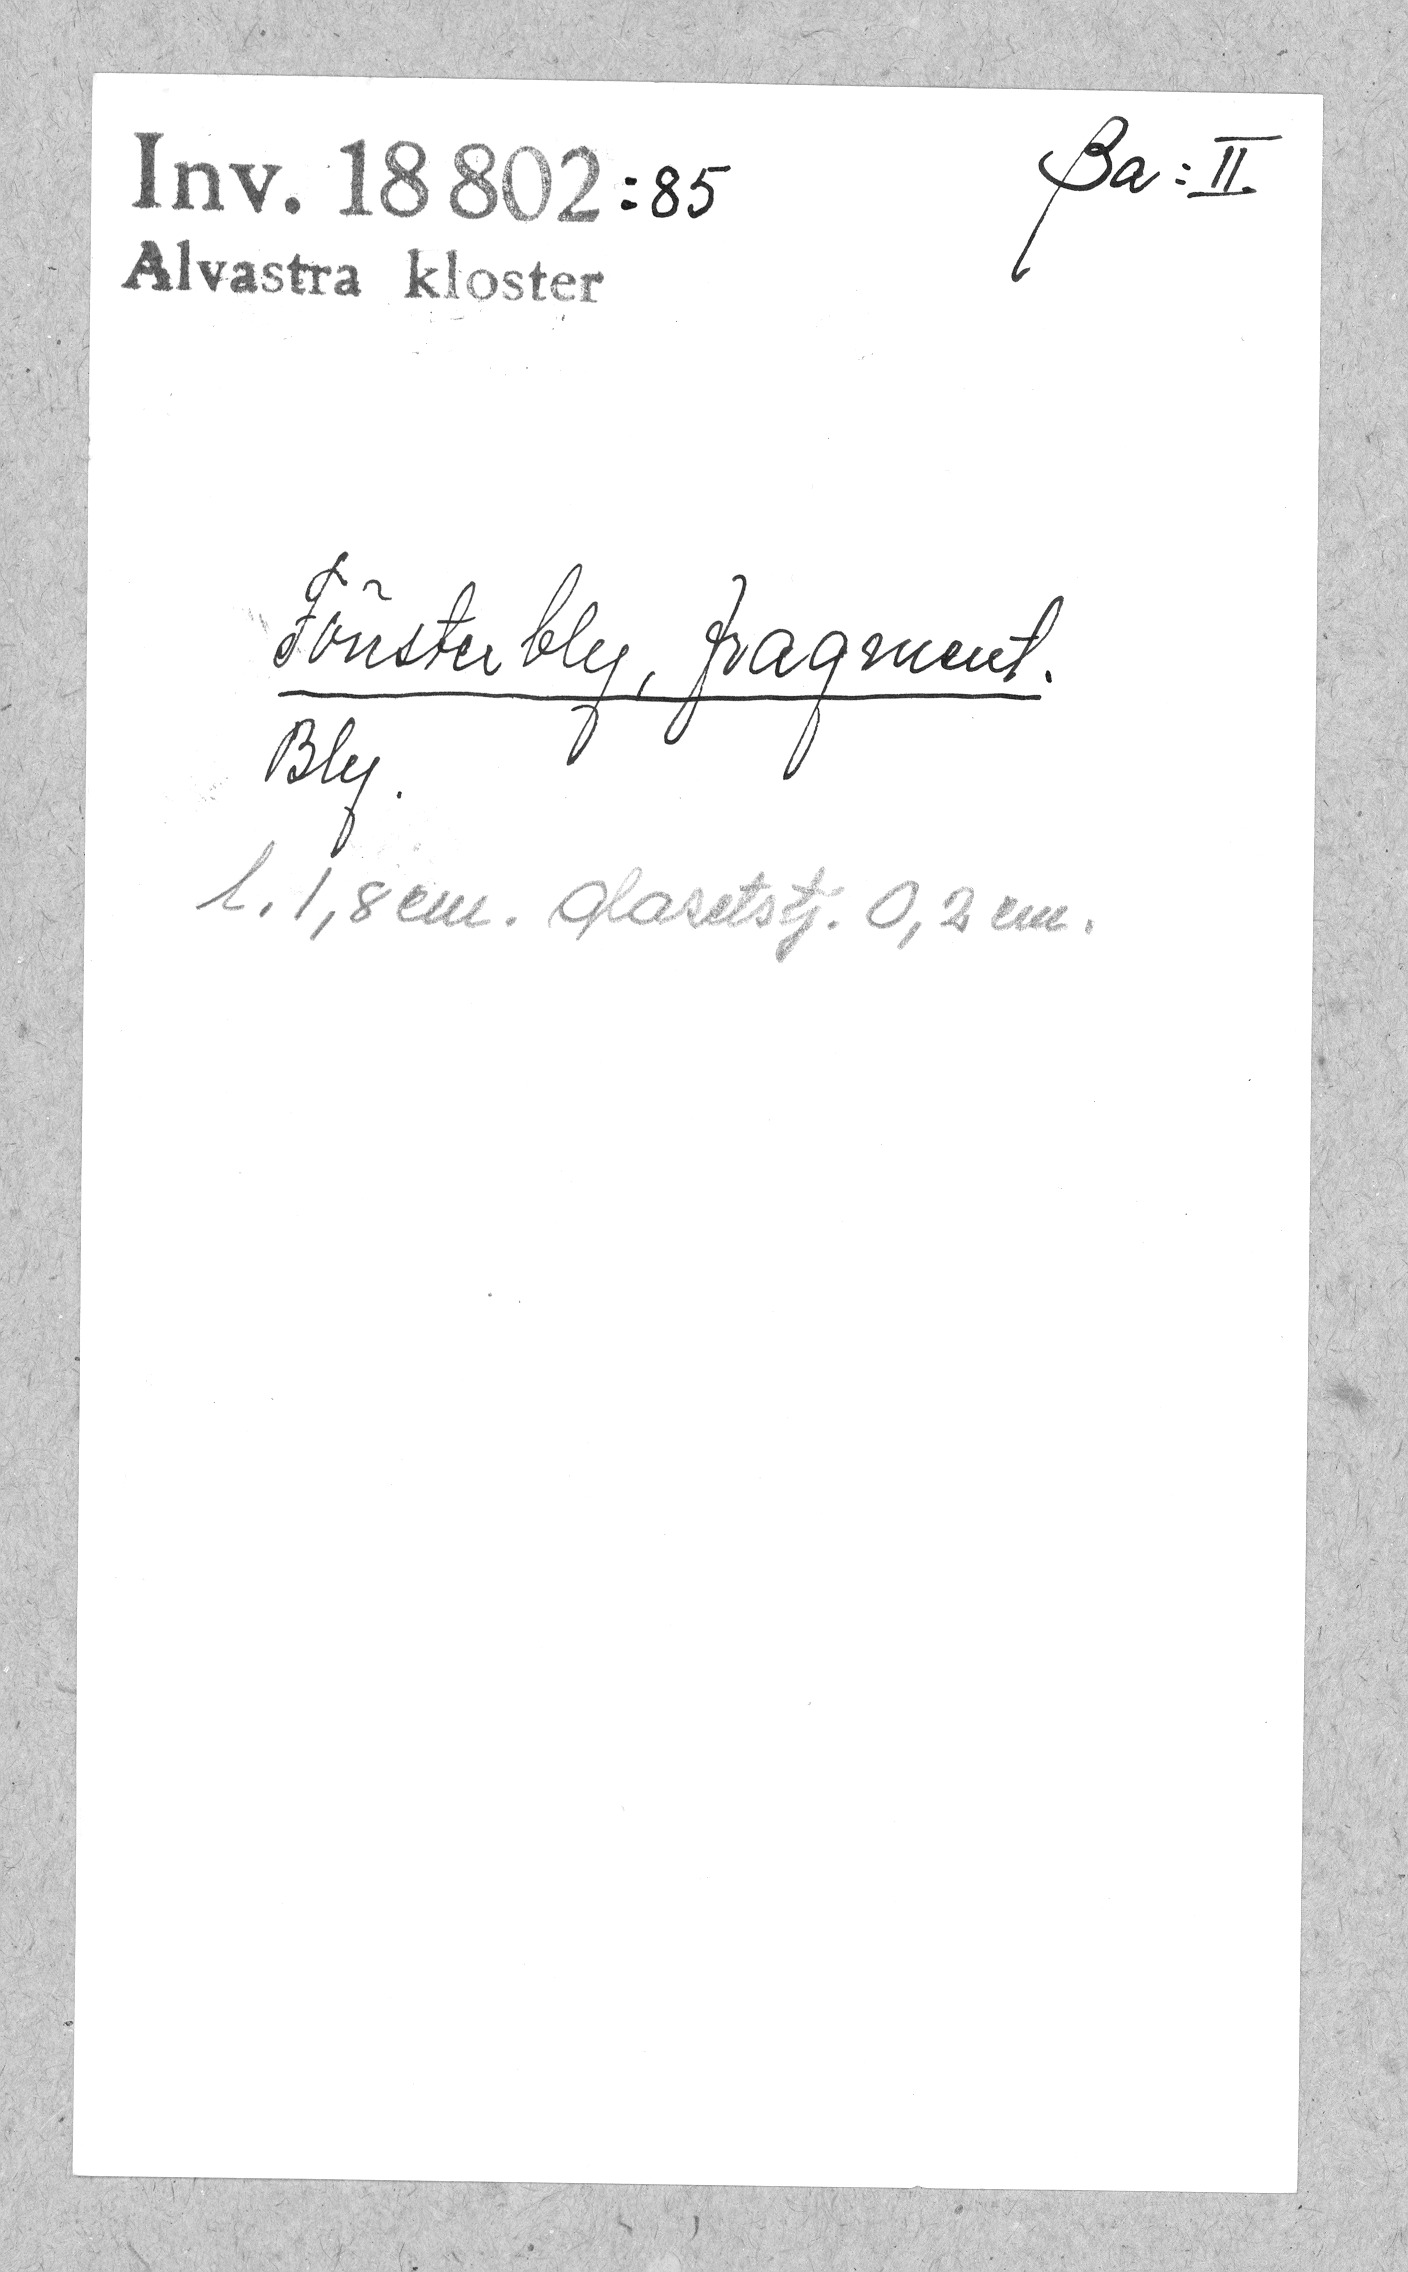 Inv. 18 802:85
βa: II.
Alvastra kloster
Fönsterbly, fragment.
Bly.
l. 1,8 cm. Glasetstj. 0,2 cm.